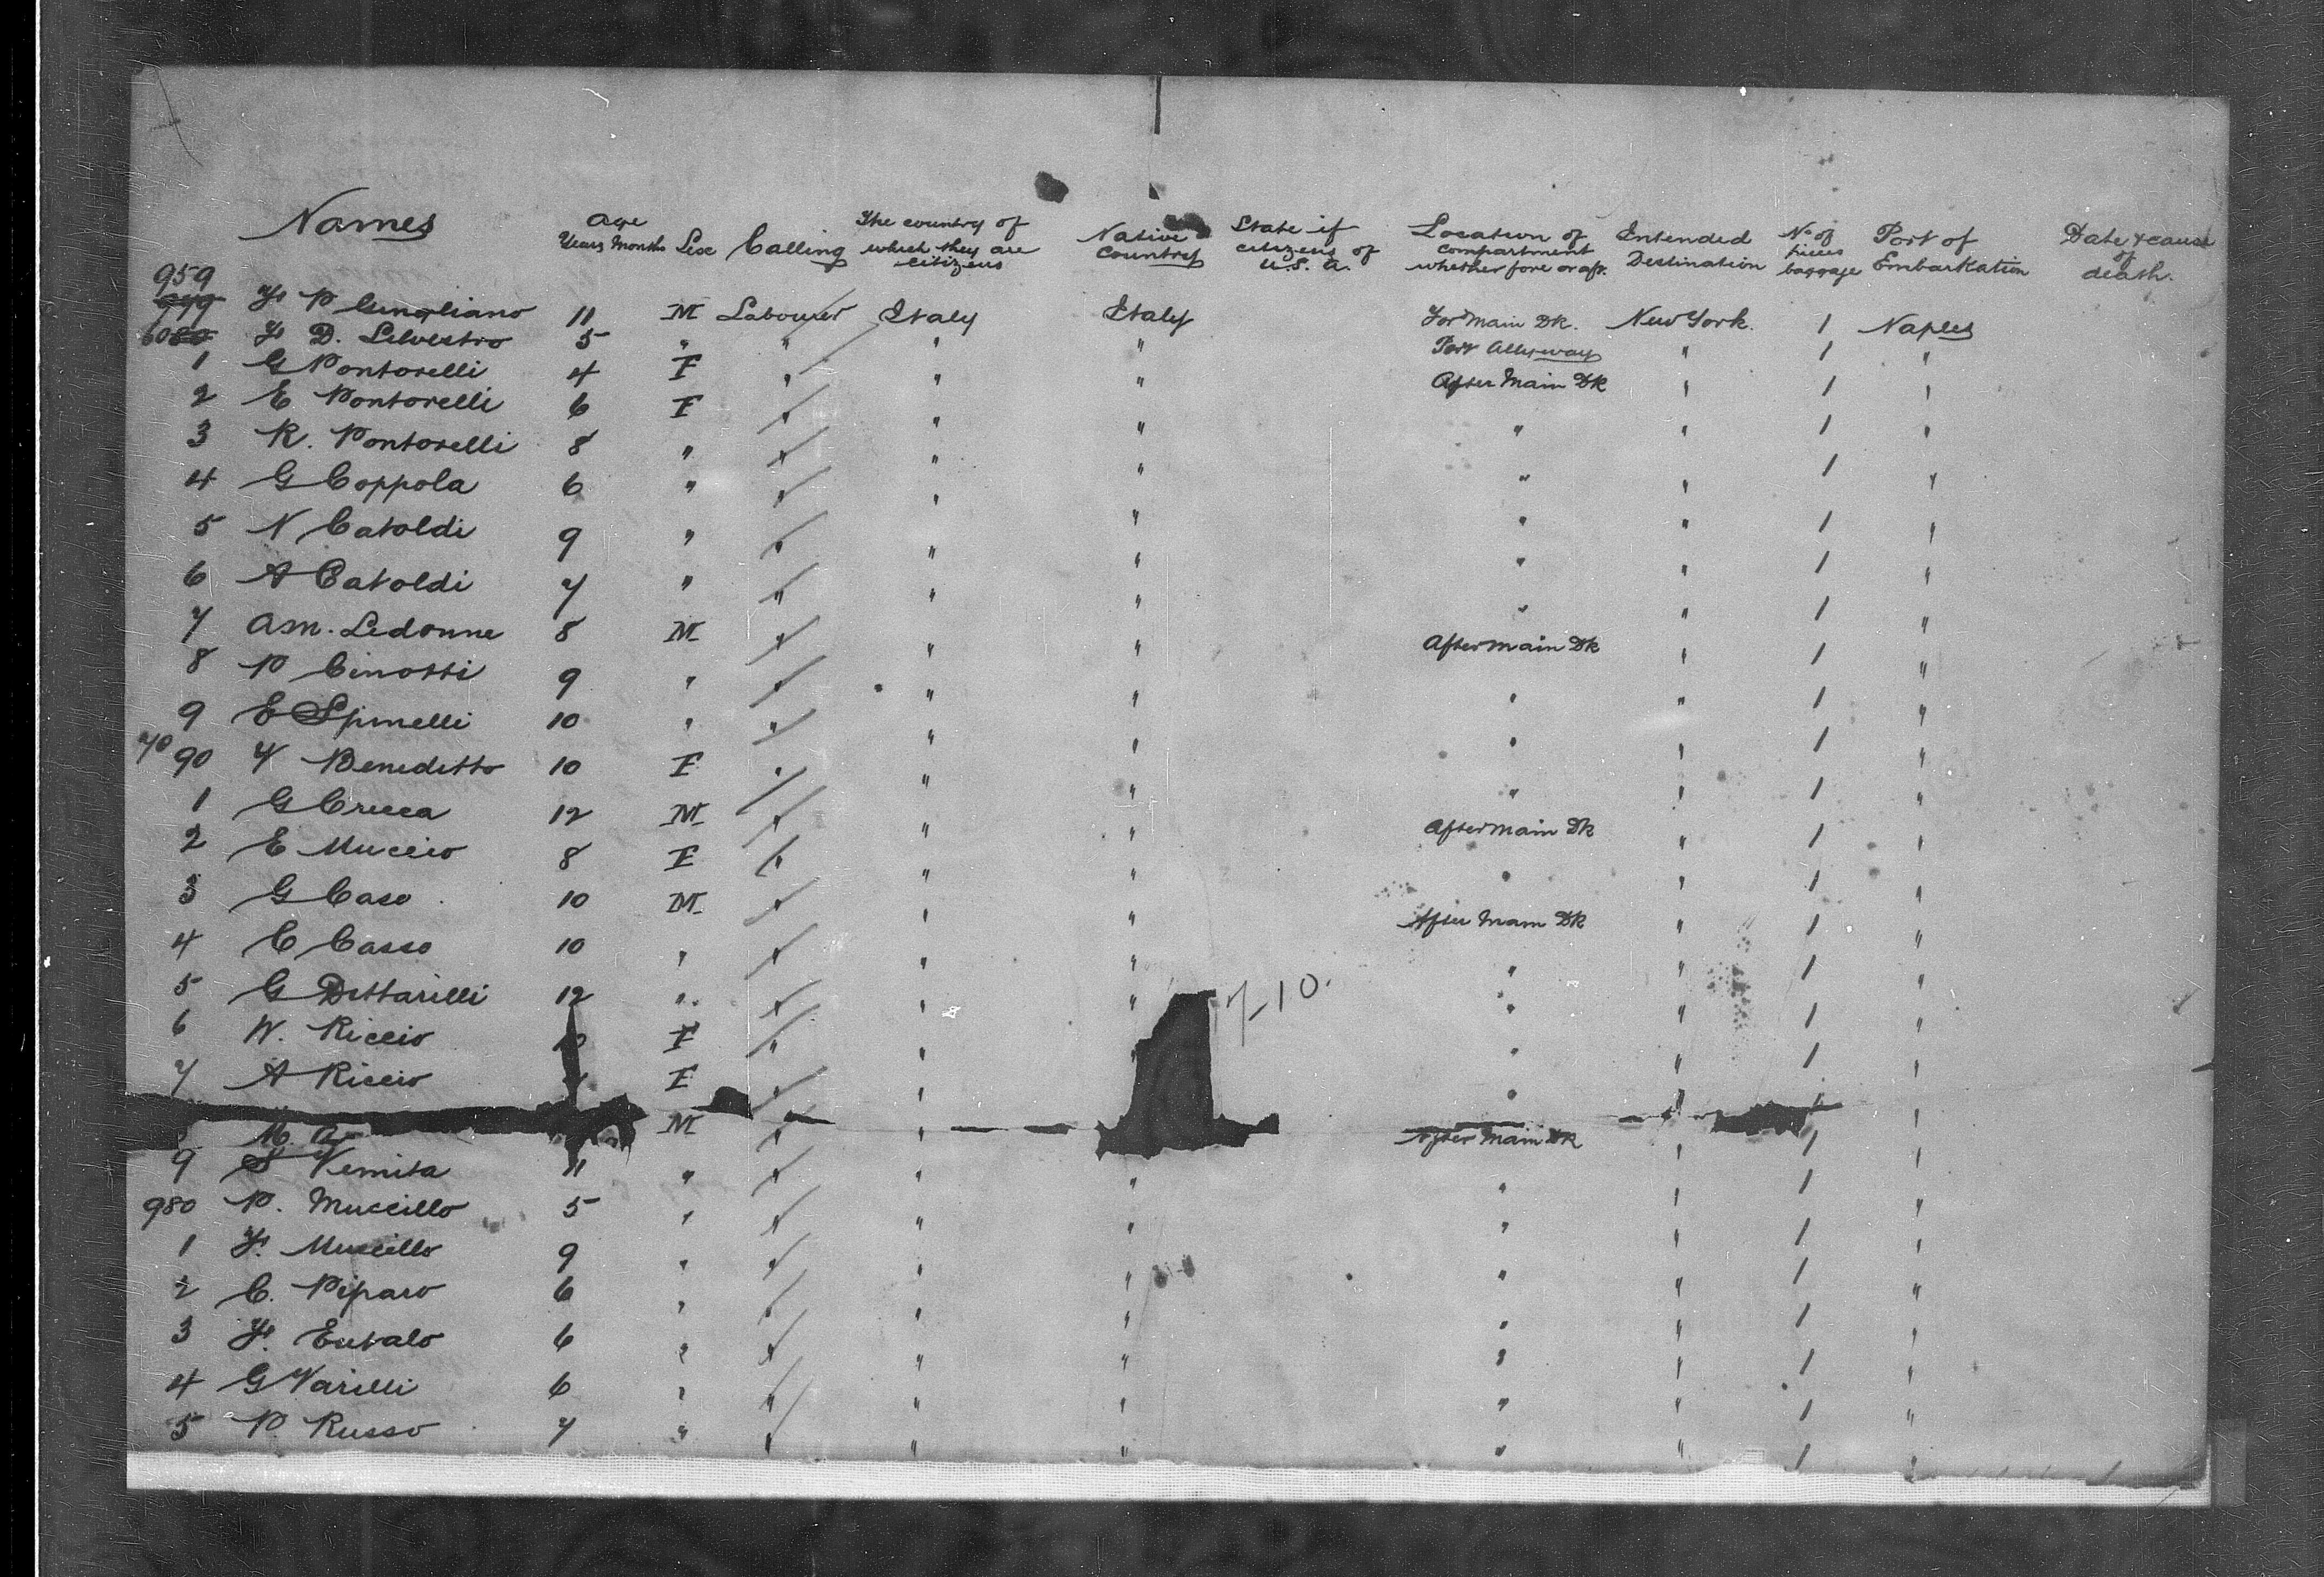 Names Age Years Months Sex Calling The country of which they are citizens Native Country State if citizens of U.S.A. Location of compartment whether fore or aft. Intended Destination No of pieces baggage Port of Embarkation Date & cause of death.
959
F P Gingliano 11 M Labourer Italy Italy For Main Dk. New York. 1 Naples
6080 F D. Silvestro 5 " " " " Port Alleyway " 1 "
1 G Pontorelli 4 F " " " After Main Dk " 1 "
2 E Pontorelli 6 F " " " " " 1 "
3 R. Pontorelli 8 " " " " " " 1 "
4 G Coppola 6 " " " " " " 1 "
5 N Catoldi 9 " " " " " " 1 "
6 A Catoldi 7 " " " " " " 1 "
7 Am. Ledonne 8 M " " " After Main Dk " 1 "
8 P Cinotti 9 " " " " " " 1 "
9 E Spinelli 10 " " " " " " 1 "
70 90 F Benedetto 10 F " " " " " 1 "
1 G Crecca 12 M " " " After Main Dk " 1 "
2 E Muccio 8 F " " " " " 1 "
3 G Caso 10 M " " " After Main Dk " 1 "
4 C Casso 10 " " " " " " 1 "
5 G Dettarilli 12 " " " " " " 1 "
7-10.
6 W. Riccio F " " " " " 1 "
7 A Riccio F " " " " 1 "
M. A M " " After Main Dk " 1 "
9 S Vemita 11 " " " " " " 1 "
980 P. Muccillo 5 " " " " " " 1 "
1 F. Muscillo 9 " " " " " " 1 "
2 C. Piparo 6 " " " " " " 1 "
3 F. Eutalo 6 " " " " " " 1 "
4 G Varilli 6 " " " " " " 1 "
5 P. Russo 7 " " " " " " 1 "